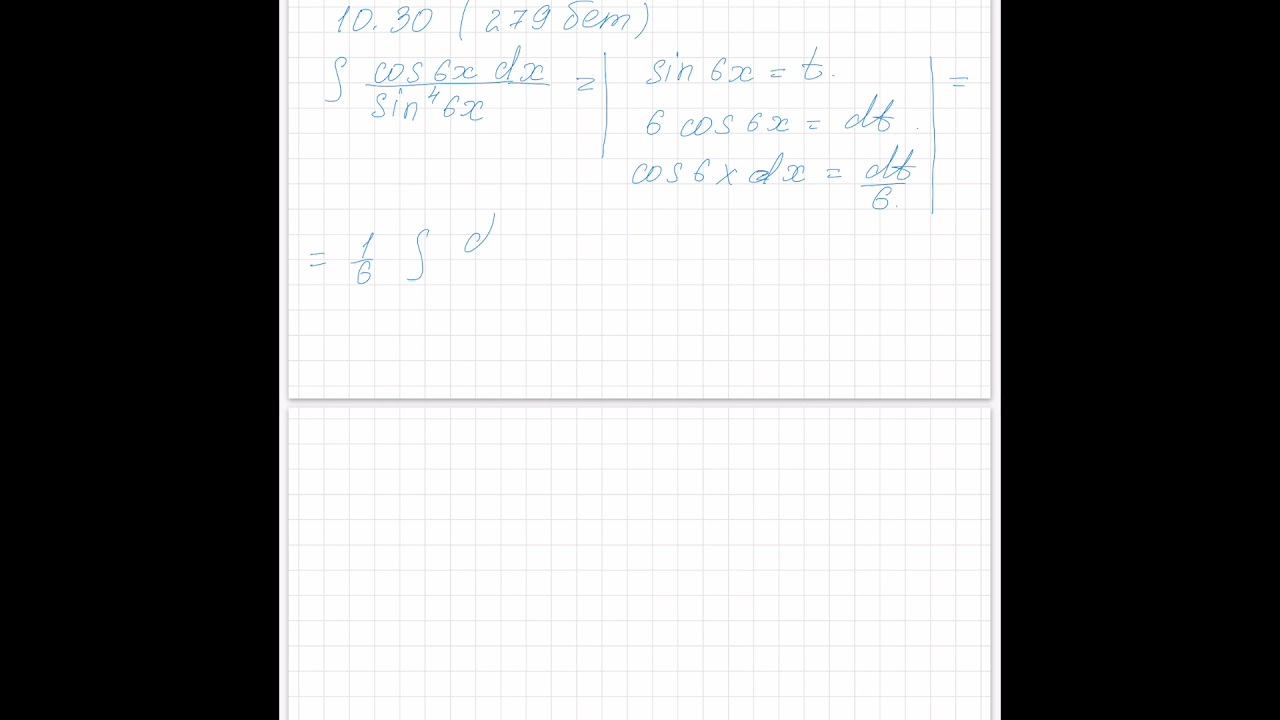 10.30 (279 бет)
∫ cos 6x dx / sin⁴ 6x = | sin 6x = t. | =
6 cos 6x = dt.
cos 6x dx = dt / 6.
= 1/6 ∫ d